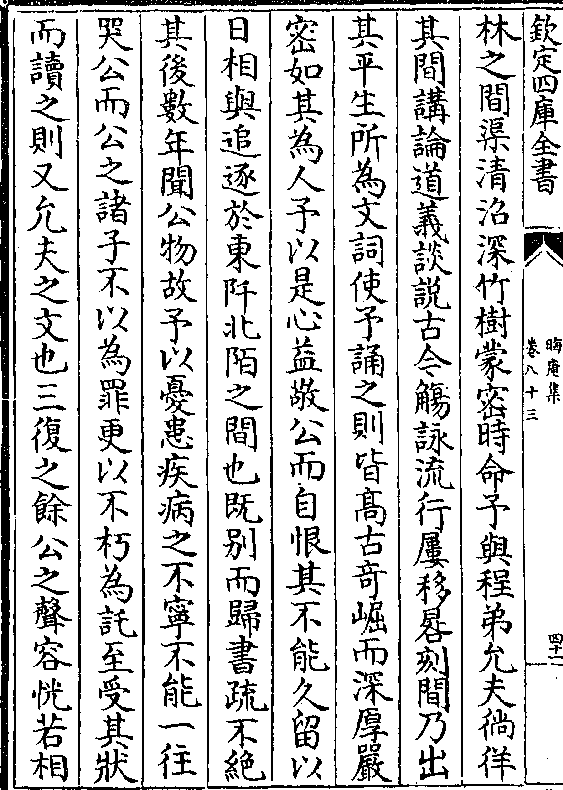 欽定四庫全書
晦庵集
卷八十三
四十一
林之間渠清沼深竹樹蒙密時命予與程弟允夫徜徉
其間講論道義談説古今觴詠流行屢移晷刻間乃出
其平生所為文詞使予誦之則皆髙古竒崛而深厚嚴
密如其為人予以是心益敬公而自恨其不能久留以
日相與追逐於東阡北陌之間也既别而歸書疏不絶
其後數年聞公物故予以憂患疾病之不寧不能一往
哭公而公之諸子不以為罪更以不朽為託至受其狀
而讀之則又允夫之文也三復之餘公之聲容恍若相